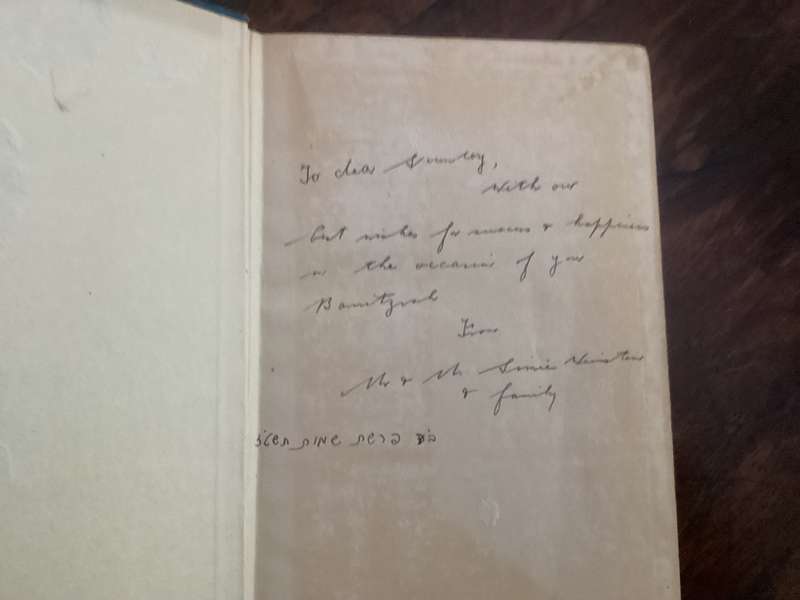 To dear
With our
best wishes for success & happiness
on the occasion of your
Barmitzvah
From
Mr & Mrs
& family
פרשת שמות